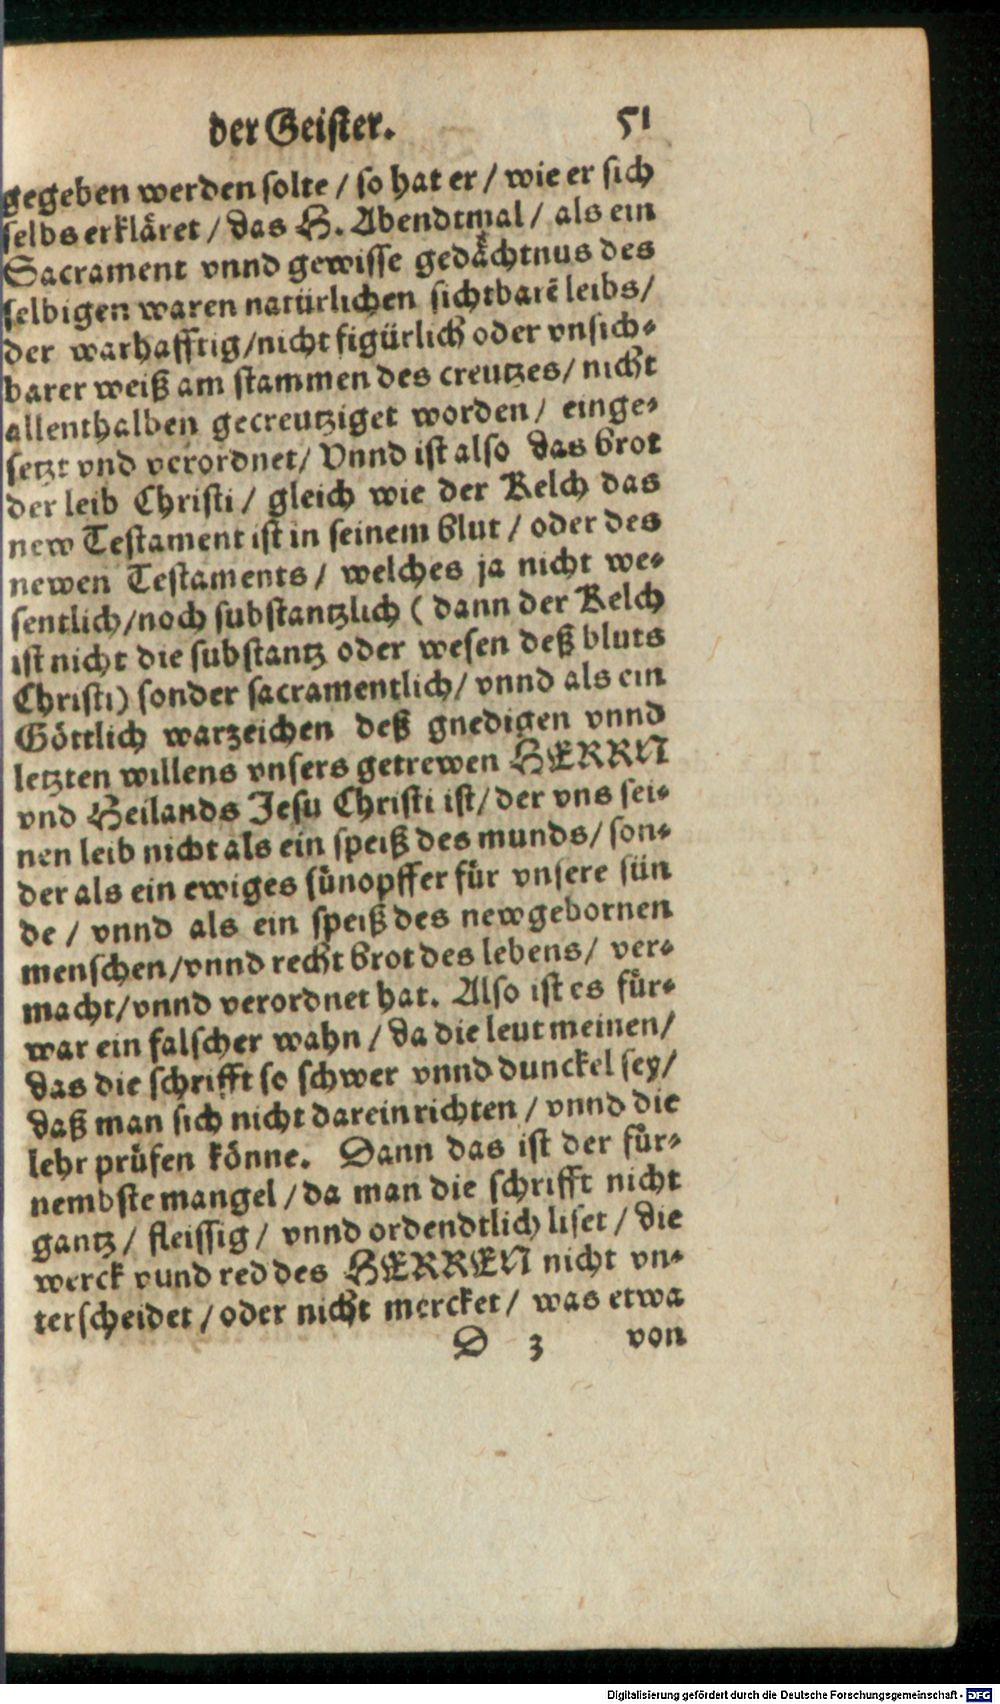 der Geister. 51
gegeben werden solte / so hat er / wie er sich
selbs erkläret / das H. Abendtmal / als ein
Sacrament vnnd gewisse gedächtnus des
selbigen waren natürlichen sichtbarē leibs /
der warhafftig / nicht figürlich oder vnsich⸗
barer weiß am stammen des creutzes / nicht
allenthalben gecreutziget worden / einge⸗
setzt vnd verordnet / Vnnd ist also das brot
der leib Christi / gleich wie der Kelch das
new Testament ist in seinem blut / oder des
newen Testaments / welches ja nicht we⸗
sentlich / noch substantzlich ( dann der Kelch
ist nicht die substantz oder wesen deß bluts
Christi) sonder sacramentlich / vnnd als ein
Göttlich warzeichen deß gnedigen vnnd
letzten willens vnsers getrewen HERRN
vnd Heilands Jesu Christi ist / der vns sei⸗
nen leib nicht als ein speiß des munds / son⸗
der als ein ewiges sünopffer für vnsere sün
de / vnnd als ein speiß des newgebornen
menschen / vnnd recht brot des lebens / ver⸗
macht / vnnd verordnet hat. Also ist es für⸗
war ein falscher wahn / da die leut meinen /
das die schrifft so schwer vnnd dunckel sey /
daß man sich nicht darein richten / vnnd die
lehr prüfen könne. Dann das ist der für⸗
nembste mangel / da man die schrifft nicht
gantz / fleissig / vnnd ordendtlich liset / die
werck vund red des HERREN nicht vn⸗
terscheidet / oder nicht mercket / was etwa
D 3 von
Digitalisierung gefördert durch die Deutsche Forschungsgemeinschaft - DFG